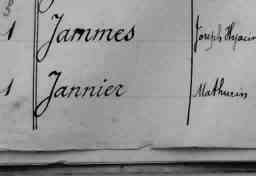 1 Jammes Joseph Hyacin
1 Jannier Mathurin